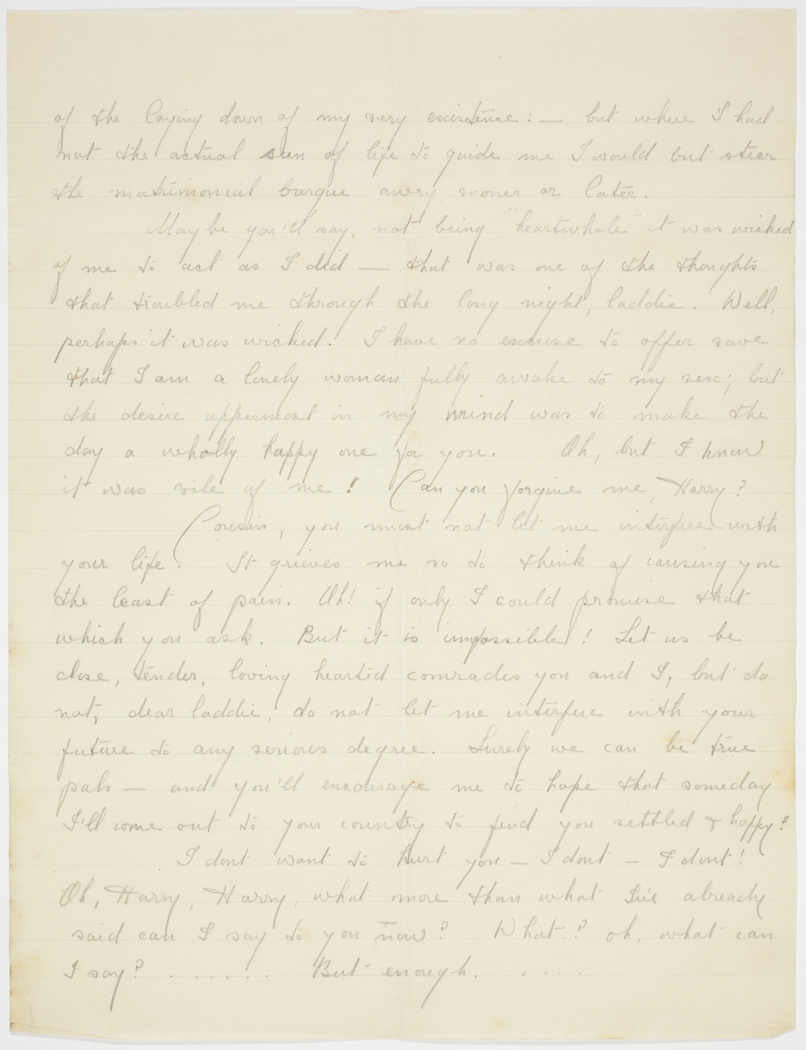 of the laying down of my very existense: — but where I had
not the actual sun of life to guide me I would but steer
the matrimonial barque awry sooner or later.
Maybe you'll say, not being "heartwhole" it was wicked
of me to act as I did — that was one of the thoughts
that troubled me through the long night, laddie. Well,
perhaps it was wicked! I have no excuse to offer save
that I am a lonely woman fully awake to my sex; but
the desire uppermost in my mind was to make the
day a wholly happy one for you. Oh, but I know
it was vile of me! Can you forgive me, Harry?
Cousin, you must not let me interfere with
your life. It grieves me so to think of causing you
the least of pain. Oh! if only I could promise that
which you ask. But it is impossible! Let us be
close, tender, loving hearted comrades you and I, but do
not, dear laddie, do not let me interfere with your
future to any serious degree. Surely we can be true
pals — and you'll encourage me to hope that someday
I'll come out to your country to find you settled & happy?
I dont want to hurt you — I dont — I dont!
Oh, Harry, Harry, what more than what I've already
said can I say to you now? What? oh, what can
I say? ...... But enough. ....